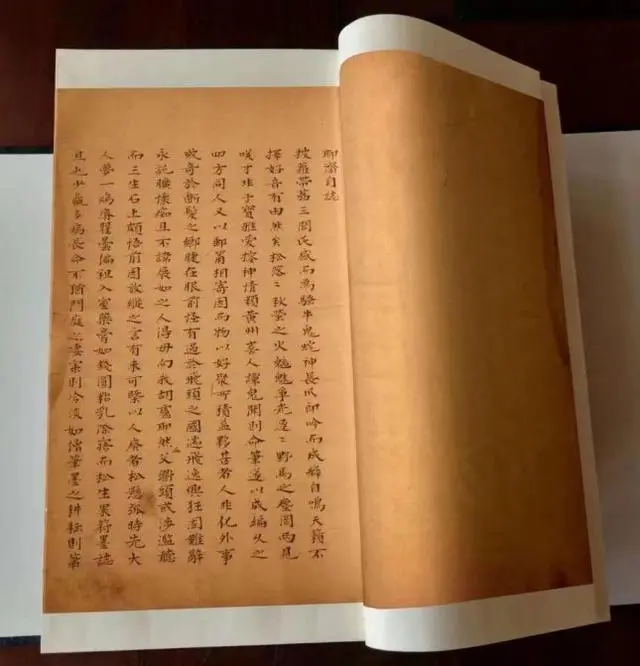 聊齋自誌
披蘿帶荔三閭氏感而為騷牛鬼蛇神長爪郎吟而成癖自鳴天籟不
擇好音有由然矣松落〻秋螢之火魑魅爭光逐〻野馬之塵罔兩見
咲才非干寶雅愛搜神情類黃州喜人譚鬼聞則命筆遂以成編久之
四方同人又以郵筩相寄因而物以好聚所積益夥甚者人非化外事
或奇於斷髮之鄉睫在眼前怪有過於飛頭之國遄飛逸興狂固難辭
永託曠懷痴且不諱展如之人得毋向我胡盧耶然五父衢頭或涉濫聽
而三生石上頗悟前因放縱之言有未可槩以人廢者松懸弧時先大
人夢一病瘠瞿曇偏袒入室藥膏如錢圓粘乳際寤而松生果符墨誌
且也少羸多病長命不猶門庭之凄寂則冷淡如僧筆墨之耕耘則蕭